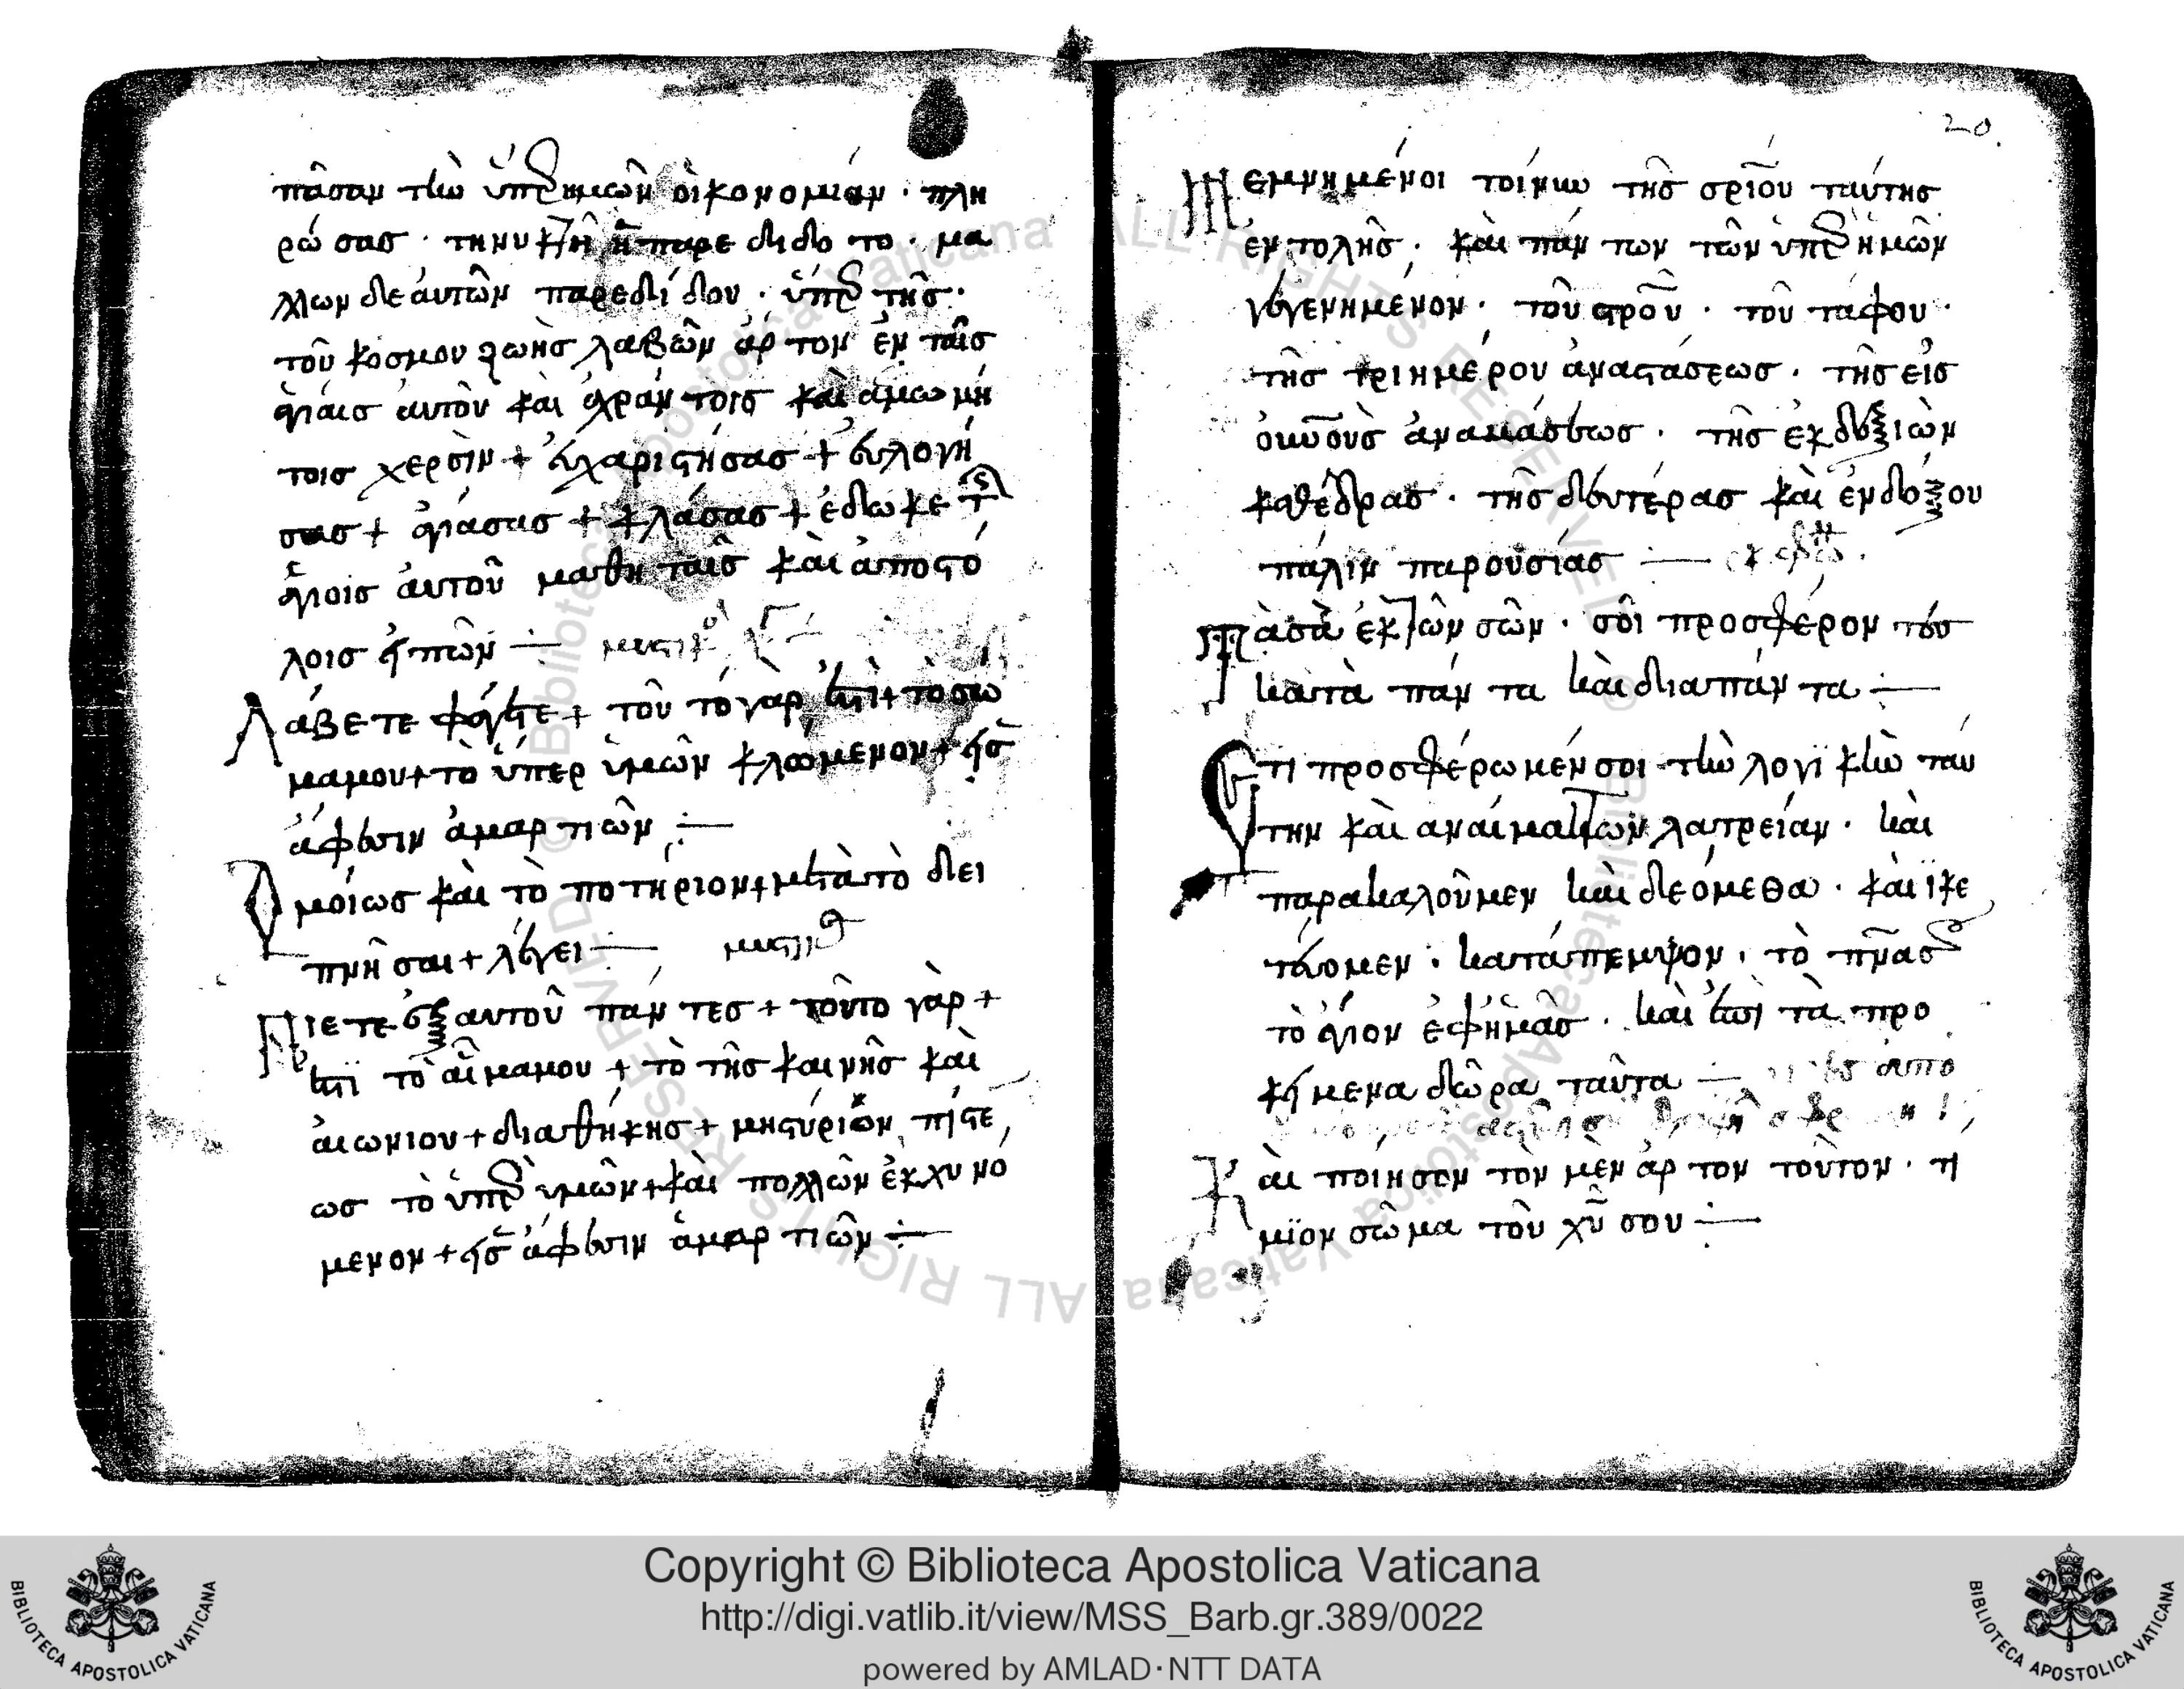 πᾶσαν τὴν ὑπὲρ ἡμῶν οἰκονομίαν · πλη
ρώσας · τῆ νυκτὶ ἧ παρεδίδοτο · μα
λλων δε ἑαυτῶν παρεδίδου · ὑπὲρ τῆς ·
τοῦ κόσμου ζωῆς λαβῶν ἄρτον ἐν ταῖς
ἁγίαις αὐτοῦ καὶ ἀχράντοις καὶ ἀμωμή
τοις χερσὶν + εὐχαριστήσας + εὐλογή
σας + ἁγιάσας + κλάσας + ἔδωκε τοῖς
ἁγίοις αὐτοῦ μαθηταῖς καὶ ἀποστό
λοις εἰπῶν
Λάβετε φάγετε + τοῦτό γάρ ἐστι + τὸ σω
μα μου + τὸ ὑπερ ὑμῶν κλώμενον + εἰς
ἄφεσιν ἁμαρτιῶν
Ὁμοίως καὶ τὸ ποτήριον + μετὰ τὸ δει
πνῆσαι + λέγει
Πίετε ἐξ αὐτοῦ πάντες + τοῦτο γὰρ +
ἐστὶ τὸ αἷμα μου + τὸ τῆς καινῆς καὶ
αἰωνίου + διαθήκης + μηστύριον πίστε
ως τὸ ὑπὲρ ὑμῶν + καὶ πολλῶν ἐκχυνό
μενον + εἰς ἄφεσιν ἁμαρτιῶν
20.
Μεμνημένοι τοίνυν τῆς σρίου ταύτης
ἐντολῆς · καὶ πάντων τῶν ὑπὲρ ἡμῶν
γεγενημένον · τοῦ στροῦ · τοῦ τάφου ·
τῆς τριημέρου ἀναστάσεως · τῆς εἰς
οὐνοὺς ἀναβάσεως · τῆς ἐκ δεξιῶν
καθέδρας · τῆς δευτέρας καὶ ἐνδόξου
πάλιν παρουσίας
Τὰ σὰ ἐκ τῶν σῶν · σοὶ προσφέροντες
κατὰ πάντα καὶ δια πάντα
Ἔτι προσφέρωμέν σοι τὴν λογικὴν ταύ
την καὶ ἀναίμακτων λατρείαν · καὶ
παρακαλοῦμεν καὶ δεόμεθα · καὶ ἱκε
τεύομεν · κατάπεμψον · τὸ πνα σου
τὸ ἅγιον ἐφ' ἡμᾶς · καὶ ἐπὶ τὰ προ
κείμενα δῶρα ταῦτα
Καὶ ποίησον τὸν μὲν ἄρτον τοῦτον · τί
μϊον σῶμα τοῦ χῦ σου
© Biblioteca Apostolica Vaticana ALL RIGHTS RESERVED
Copyright © Biblioteca Apostolica Vaticana
http://digi.vatlib.it/view/MSS_Barb.gr.389/0022
powered by AMLAD·NTT DATA
BIBLIOTECA APOSTOLICA VATICANA
BIBLIOTECA APOSTOLICA VATICANA